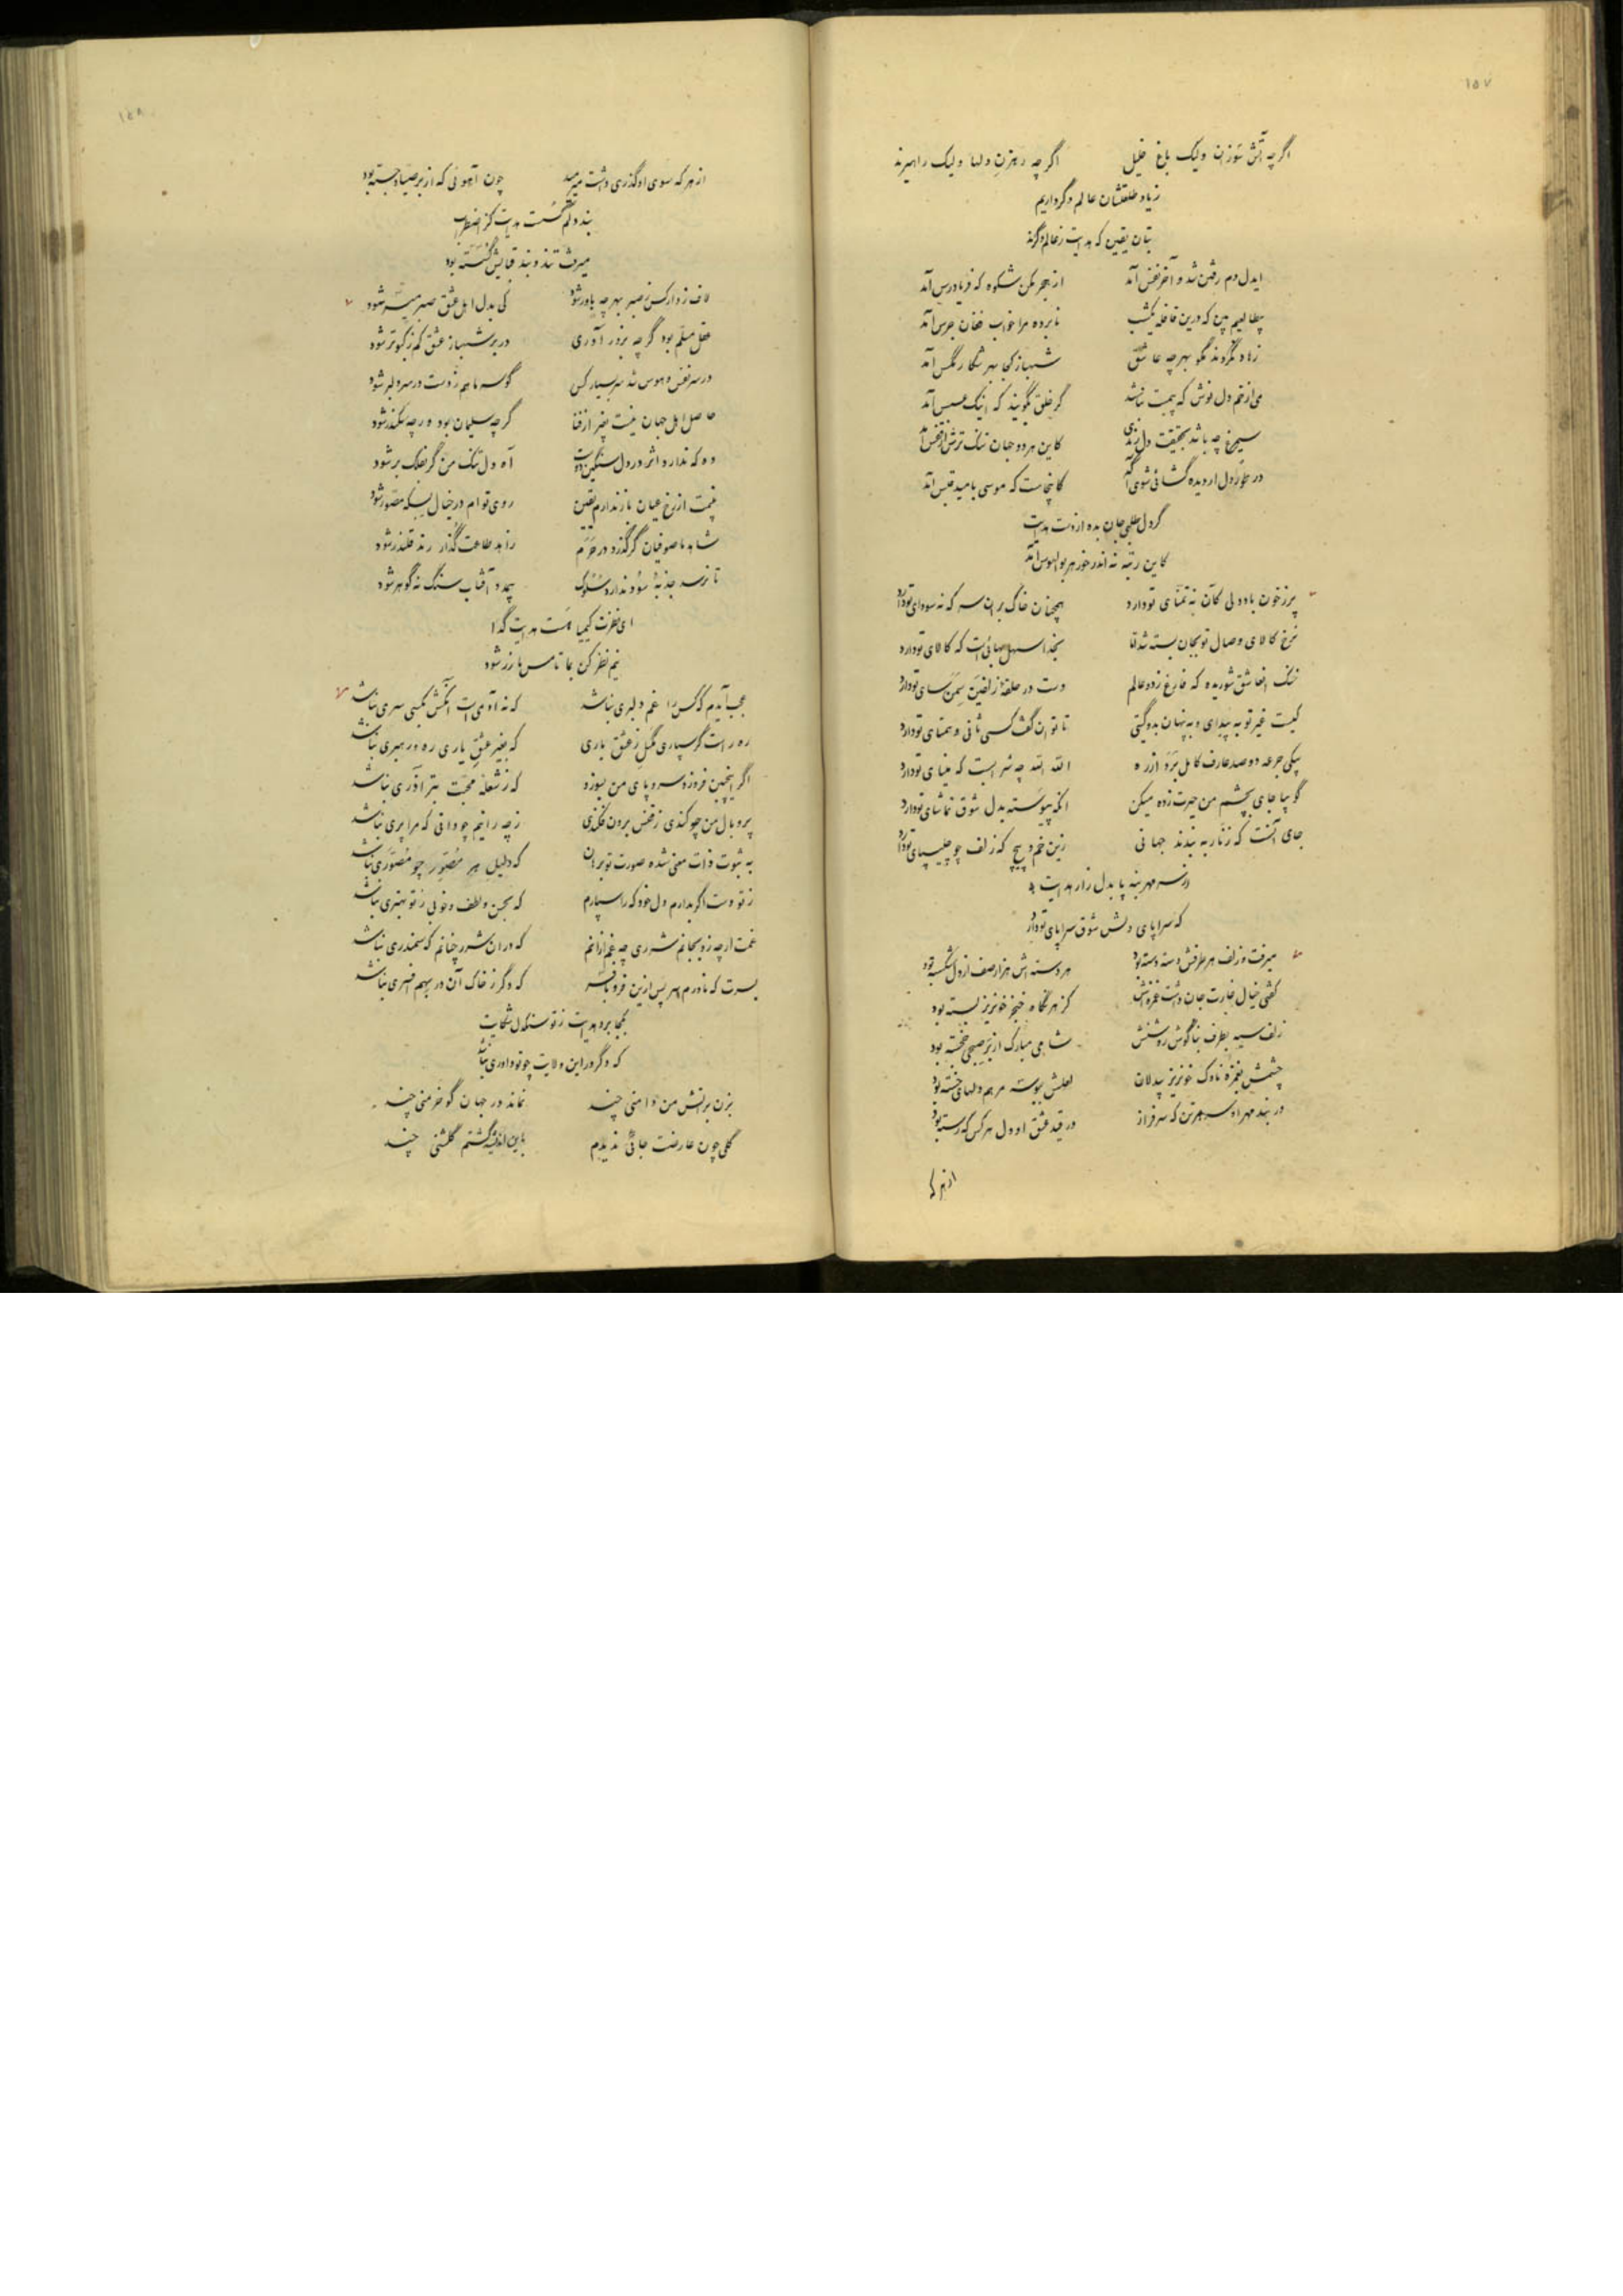 ۱۵۷
اگر چه آتش سوزان ولیک باغ خلیل اگر چه رهزن دلها ولیک راهبرند
زیاد طلعتشان عالم دگر داریم
بتان یقین که هدایت ز عالم دگرند
ایدل دم رفتن شد و آخر نفس آمد از هجر مکن شکوه که فریادرس آمد
بیطالعیم بین که درین قافله یکشب نابرده مرا خواب فغان جرس آمد
زهاد نگروند مگو بهر چه عاشق شهباز کجا بهر شکار مگس آمد
می از خم دل نوش که بیمت نباشد گر خلق بگویند که اینک عسس آمد
سیمرغ چه باشد بحقیقت دل کاین هر دو جهان تنگ ترش از قفس آمد
در طور دل ار دیده گشائی شوی آگه کاینجاست که موسی بامید قبس آمد
گر دل طلبی جان بده از دست هدایت
کاین رتبه نه اندر خور هر بوالهوس آمد
پر ز خون باد دلی کان نه تمنای تو دارد همچنان خاک بر ان سر که نه سودای تو دارد
نرخ کالای وصال تو بجان بسته شد اما بخدا سهل بهائی است که کالای تو دارد
خنک انعاشق شوریده که فارغ زدو عالم دست در حلقهٔ زلفین سمن سای تو دارد
کیست غیر تو به پیدای و به پنهان بدو گیتی تا توان گفت کسی ثانی و همتای تو دارد
بیکی جرعه دو صد عارف کامل برد از ره الله الله چه شر است که مینای تو دارد
گو بیا جای بچشم من حیرت زده میکن انکه پیوسته بدل شوق تماشای تو دارد
جای آنست که زنار به بندند جهانی زین خم و پیچ که زلف چو چلیپای تو دارد
از سر مهر بنه پا بدل زار هدایت
که سراپای دلش شوق سراپای تو دارد
میرفت و زلف هر طرفش دسته دسته بود هر دسته اش هزار صف از دل شکسته بود
گفتی خیال غارت جان داشت غمزه اش کز هر نگاه خنجر خونریز بسته بود
زلف سیه بطرف بناگوش روشنش شامی مبارک از بر صبحی خجسته بود
چشمش بغمزه ناوک خونریز بیدلان لعلش ببوسه مرهم دلهای خسته بود
در بند مهر او سر هر تن که سرفراز در قید عشق او دل هر کس که رسته بود
از هر که
۱۵۸
از هر که سوی او گذری داشت میرمید چون آهوئی که از بر صیاد جسته بود
بند دلم گسست هدایت کز اضطراب
میرفت تند و بند قبایش گسسته بود
لاف زد ار کس ز صبر بهر چه باور شود کی بدل اهل عشق صبر میسر شود
عقل مسلم بود گرچه بزور آوری در بر شهباز عشق کم ز کبوتر شود
در سر نفس و هوس شد سر بسیار کس گو سر ما هم ز دست در سر دلبر شود
حاصل اهل جهان نیست بغیر از فنا گر چه سلیمان بود ور چه سکندر شود
وه که ندارد اثر در دل سنگین دوست آه دل تنگ من گر بفلک بر شود
نیست از رخ عیان باز ندارم یقین روی توام در خیال بسکه مصور شود
شاهد ما صوفیان گر گذرد در حرم زاهد طاعت گذار رند قلندر شود
تا نرسد جذبهٔ سود ندارد سلوک بیمدد آفتاب سنگ نه گوهر شود
ای نظرت کیمیا هست هدایت گدا
نیم نظر کن بما تا مس ما زر شود
عجب آیدم که کس را غم دلبری نباشد که نه آدمی است آنکش بکسی سری نباشد
ره راست گر سپاری مگسل ز عشق باری که بغیر عشق یاری ره و رهبری نباشد
اگر اینچنین فروزد سر و پای من بسوزد که ز شعله محبت بتر آذری نباشد
پر و بال من چو کندی ز قفس برون فکندی ز چه رانیم چو دانی که مرا پری نباشد
به ثبوت ذات معنی شده صورت تو برهان که دلیل هر مصور چو مصوری نباشد
ز تو دست اگر بدارم دل خود که را سپارم که بحسن و لطف و خوبی ز تو بهتری نباشد
غمت ار چه زد بجانم شرری چه غم ازانم که در ان شرر چنانم که سمندری نباشد
بسرت که ناورم بهر پس ازین فرو بافسر که دگر ز خاک آن در بسرم افسری نباشد
بکجا برد هدایت ز تو سنگدل شکایت
که دگر در این ولایت چو تو داوری نباشد
بزن بر اتش من دامنی چند نماند در جهان گو خرمنی چند
گلی چون عارضت جائی ندیدم باین اندیشه گشتم گلشنی چند